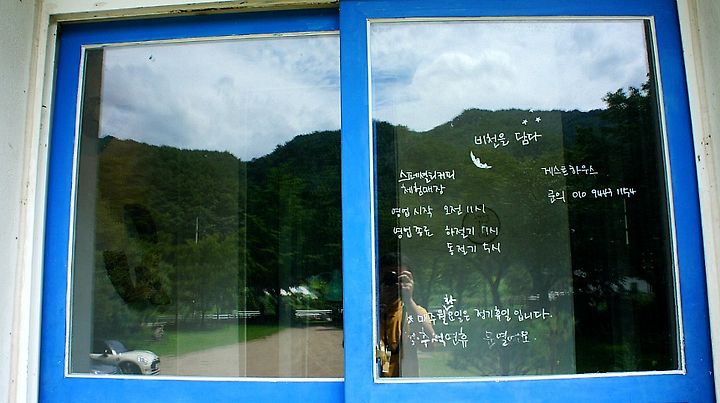 비천을 담다
스페셜티커피
체험매장
영업시작 오전 11시
영업종료 하절기
동절기 5시
게스트하우스
문의 010 9447 1154
화
매주 월요일은 정기휴일 입니다.
추석연휴 열어요.